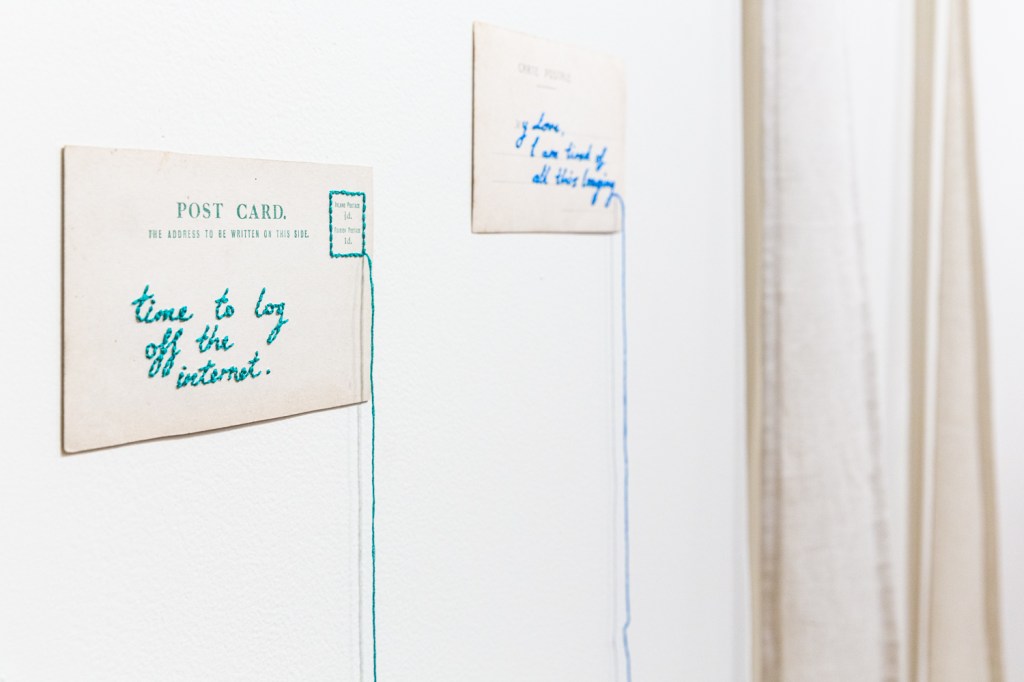 POST CARD.
THE ADDRESS TO BE WRITTEN ON THIS SIDE.
INLAND POSTAGE
½d.
FOREIGN POSTAGE
1d.
time to log
off the
internet.
CARTE POSTALE
y Love,
I am tired of
all this longing